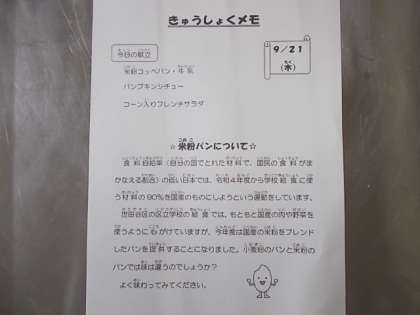 きゅうしょくメモ
今日の献立
9/21
(木)
米粉コッペパン・牛乳
パンプキンシチュー
コーン入りフレンチサラダ
☆米粉パンについて☆
食料自給率(自分の国でとれた材料で、国民の食料がま
かなえる割合)の低い日本では、令和4年度から学校給食に使
う材料の90%を国産のものにしようという運動をしています。
世田谷区の区立学校の給食では、もともと国産の肉や野菜を
使うように心がけていますが、今年度は国産の米粉をブレンド
したパンを提供することになりました。小麦粉のパンと米粉の
パンでは味は違うのでしょうか?
よく味わってみてください。